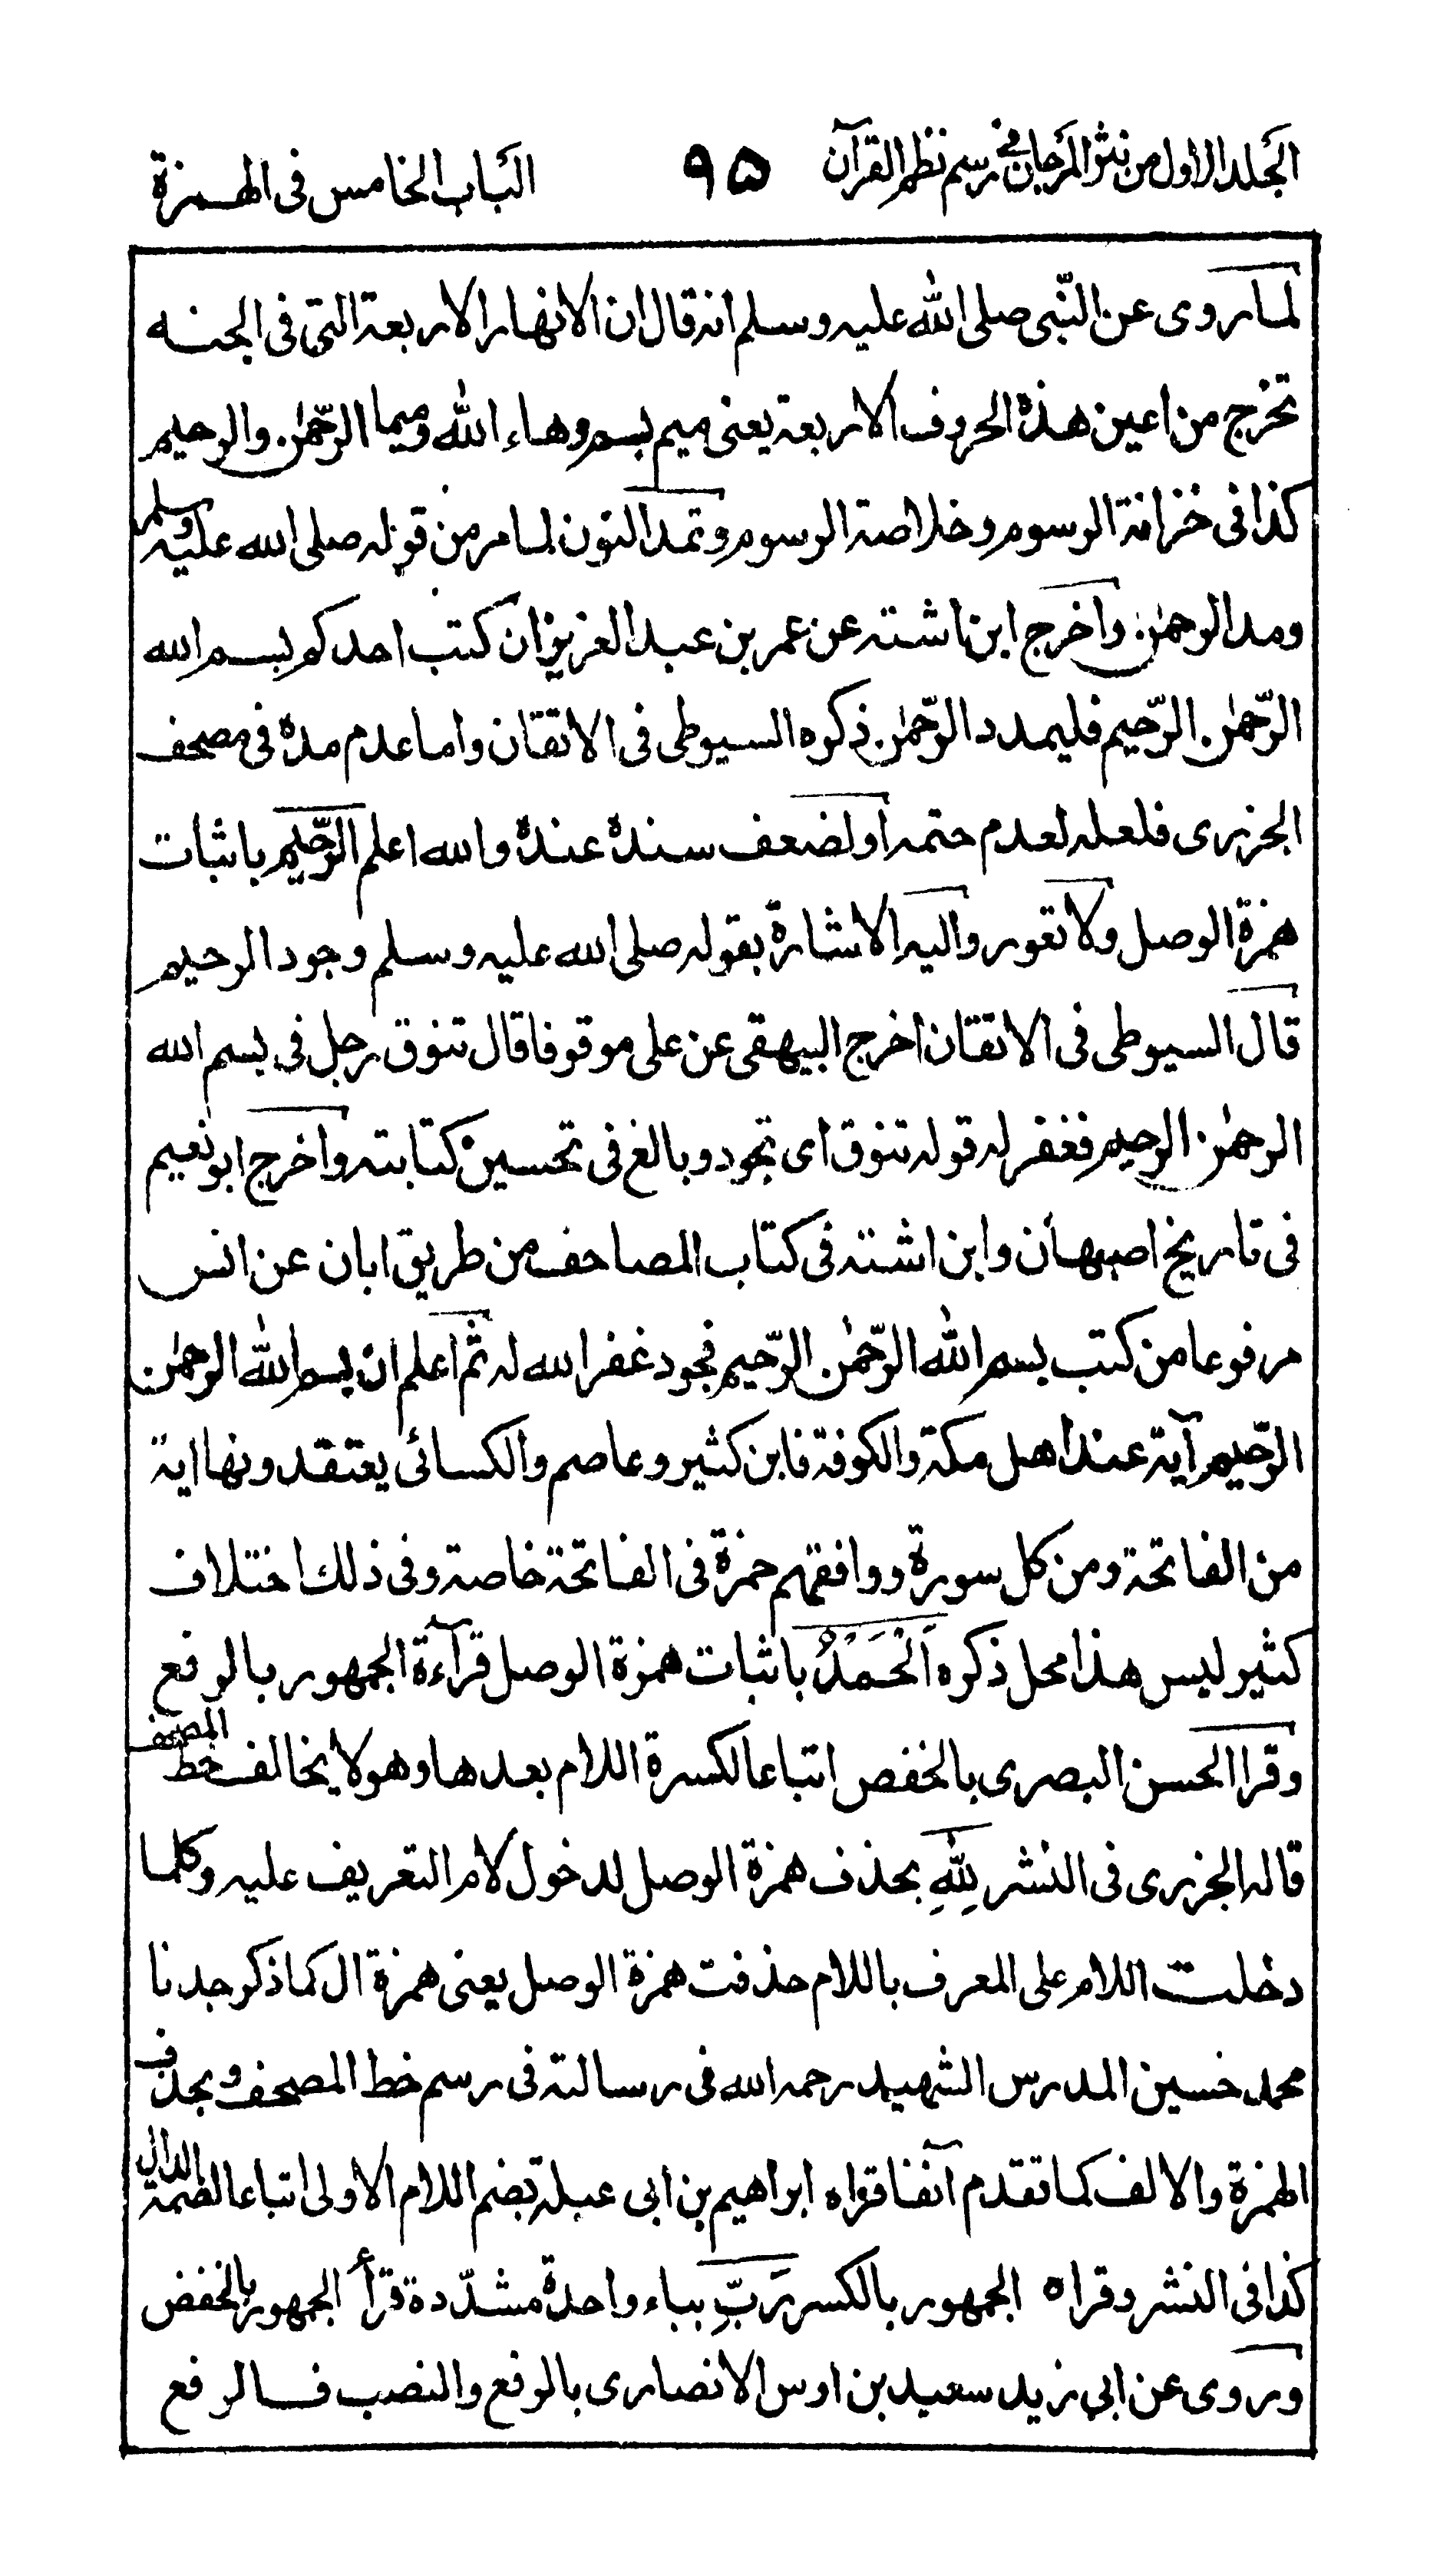 الجلد الاول من نثر المرجان في رسم نظم القرآن ٩٥ الباب الخامس فى الهمزة
لما روى عن النّبى صلى الله عليه وسلم انه قال ان الانهار الاربعة التى فى الجنه
تخرج من اعين هذه الحروف الاربعة يعنى ميم بسم وهاء الله وميما الرّحمٰن والرحيم
كذا فى خزانة الرسوم وخلاصة الرسوم وتمد النون لما مر من قوله صلى الله عليه وسلم
ومد الرحمٰن واخرج ابن اشته عن عمر بن عبد العزيز ان كتب احدكم بسم الله
الرّحمٰن الرّحيم فليمدد الرّحمٰن ذكره السيوطى فى الاتقان واما عدم مده فى مصحف
الجزرى فلعله لعدم حتمه او لضعف سنده عنده والله اعلم الرّحيم باثبات
همزة الوصل ولا تعور واليه الاشارة بقوله صلى الله عليه وسلم وجود الرحيم
قال السيوطى فى الاتقان اخرج البيهقى عن على موقوفا قال تنوق رجل فى بسم الله
الرحمٰن الرحيم فغفر له قوله تنوق اى تجود وبالغ فى تحسين كتابته واخرج ابو نعيم
فى تاريخ اصبهان وابن اشته فى كتاب المصاحف من طريق ابان عن انس
مرفوعا من كتب بسم الله الرّحمٰن الرّحيم فجود غفر الله له ثم اعلم ان بسم الله الرحمٰن
الرّحيم آية عند اهل مكة والكوفة فابن كثير وعاصم والكسائى يعتقدونها اية
من الفاتحة ومن كل سورة ووافقهم حمزة فى الفاتحة خاصة وفى ذلك اختلاف
كثير ليس هذا محل ذكره اَلْحَمْدُ باثبات همزة الوصل قرآءة الجمهور بالرفع
وقرا الحسن البصرى بالخفض اتباعا لكسرة اللام بعدها وهو لا يخالف خط المصحف
قاله الجزرى فى النشر لِلّٰهِ بحذف همزة الوصل لدخول لام التعريف عليه وكلما
دخلت اللام على المعرف باللام حذفت همزة الوصل يعنى همزة ال كما ذكر جدنا
محمد حسين المدرس الشهيد رحمه الله فى رسالته فى رسم خط المصحف وبحذف
الهمزة والالف كما تقدم آنفا قراه ابراهيم بن ابى عبلة بضم اللام الاولى اتباعا لضمة الدال
كذا فى النشر وقراه الجمهور بالكسر رَبِّ بباء واحدة مشدّدة قرأ الجمهور بالخفض
وروى عن ابى زيد سعيد بن اوس الانصارى بالرفع والنصب فالرفع